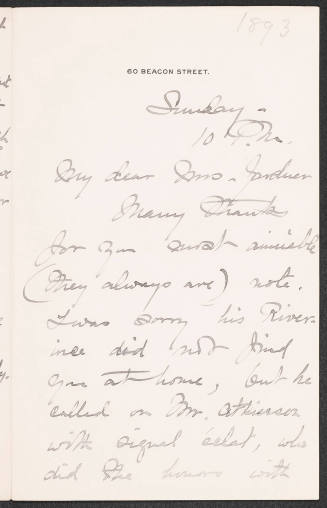 1893
60 BEACON STREET.
Sunday –
10 P.M.
My dear Mrs. Gardner
Many thanks
for your most amiable
(they always are) note.
I was sorry his River-
ince did not find
you at home, but he
called on Mr. Atkinson
with signal éclat, who
did the honors with